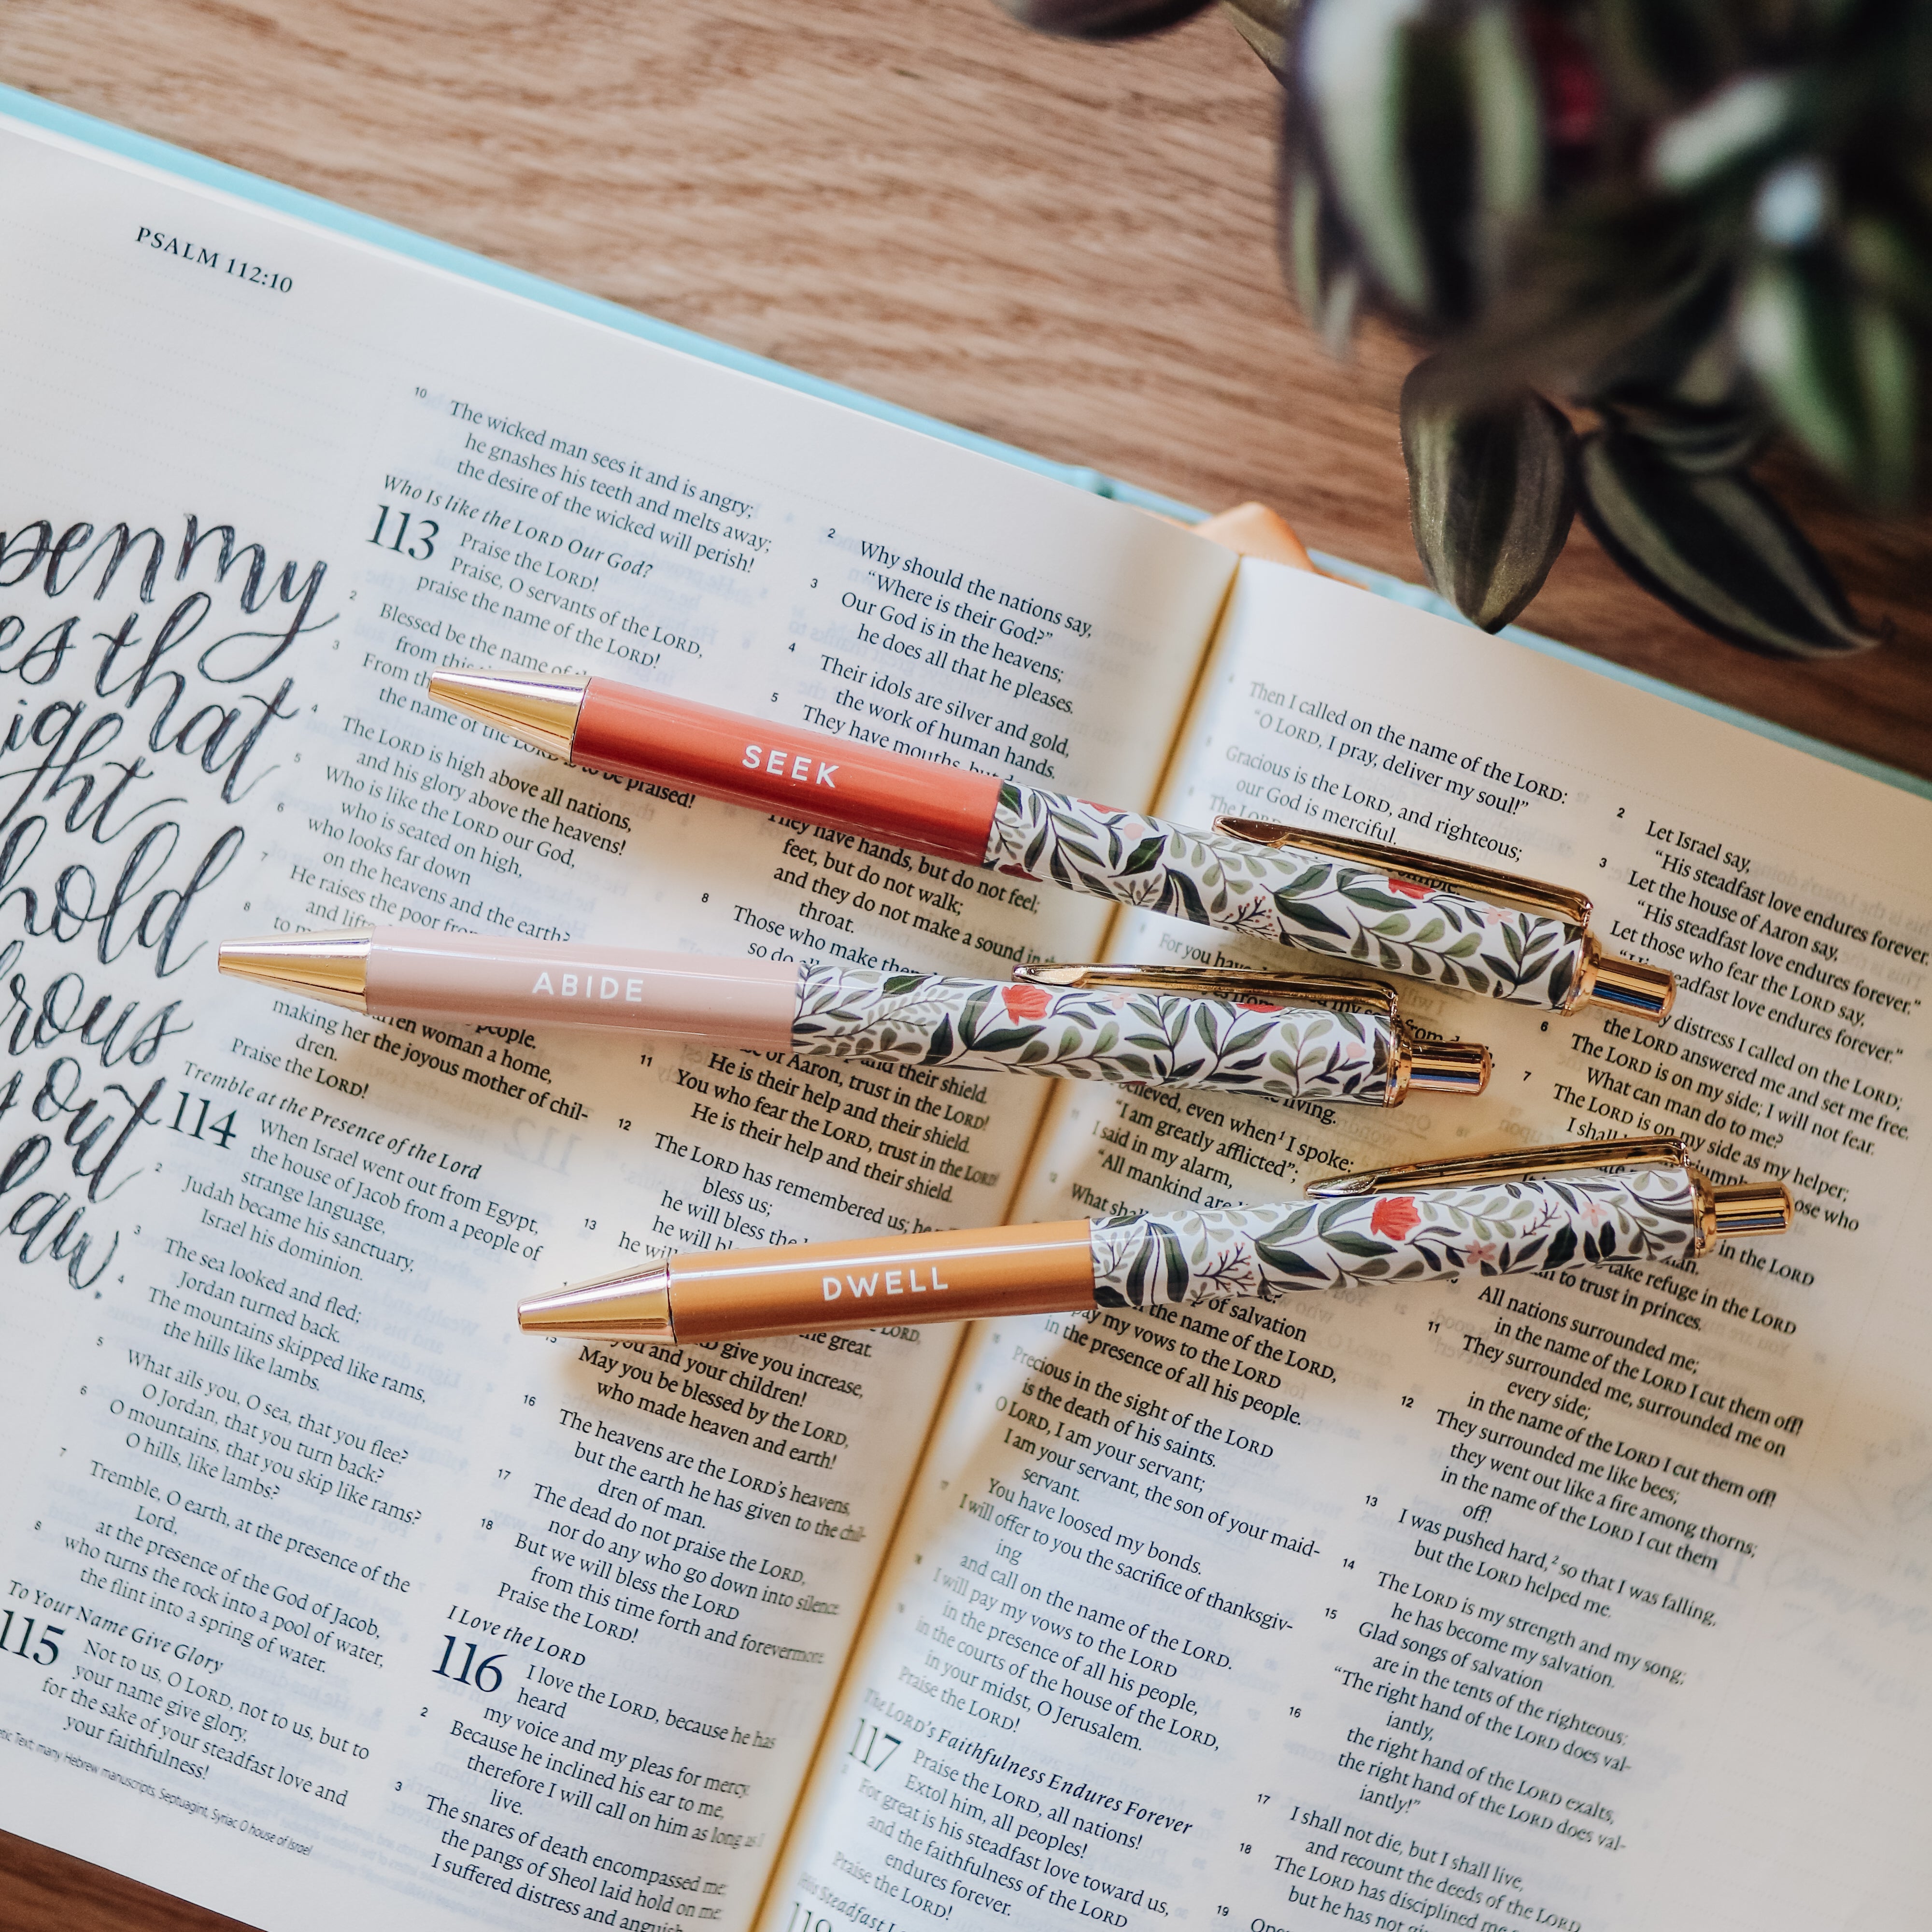 PSALM 112:10
penmy
es that
ight
hold
rous
out
law.
10 The wicked man sees it and is angry;
he gnashes his teeth and melts away;
the desire of the wicked will perish!
Who Is like the LORD Our God?
113 Praise the LORD!
Praise, O servants of the LORD,
praise the name of the LORD!
2 Blessed be the name of
from this
3 From
the name of the LORD is to be praised!
4 The LORD is high above all nations,
and his glory above the heavens!
5 Who is like the LORD our God,
who is seated on high,
6 who looks far down
on the heavens and the earth?
7 He raises the poor from
and lifts
8 to
people.
woman a home,
making her the joyous mother of chil-
dren.
Praise the LORD!
Tremble at the Presence of the Lord
114 When Israel went out from Egypt,
the house of Jacob from a people of
strange language,
2 Judah became his sanctuary,
Israel his dominion.
3 The sea looked and fled;
Jordan turned back.
4 The mountains skipped like rams,
the hills like lambs.
5 What ails you, O sea, that you flee?
O Jordan, that you turn back?
6 O mountains, that you skip like rams?
O hills, like lambs?
7 Tremble, O earth, at the presence of the
Lord,
at the presence of the God of Jacob,
8 who turns the rock into a pool of water,
the flint into a spring of water.
To Your Name Give Glory
115 Not to us, O LORD, not to us, but to
your name give glory,
for the sake of your steadfast love and
your faithfulness!
Text; many Hebrew manuscripts, Septuagint, Syriac O house of Israel
2 Why should the nations say,
"Where is their God?"
3 Our God is in the heavens;
he does all that he pleases.
4 Their idols are silver and gold,
the work of human hands.
5 They have mouths, but do
They have hands, but do not feel;
feet, but do not walk;
and they do not make a sound in
throat.
8 Those who make them
so do all
of Aaron, trust in the LORD!
He is their help and their shield.
11 You who fear the LORD, trust in the LORD!
He is their help and their shield.
12 The LORD has remembered us; he
bless us;
he will bless the
13 he will
give you increase,
you and your children!
15 May you be blessed by the LORD,
who made heaven and earth!
16 The heavens are the LORD's heavens,
but the earth he has given to the chil-
dren of man.
17 The dead do not praise the LORD,
nor do any who go down into silence.
18 But we will bless the LORD
from this time forth and forevermore.
Praise the LORD!
I Love the LORD
116 I love the LORD, because he has
heard
my voice and my pleas for mercy.
2 Because he inclined his ear to me,
therefore I will call on him as long as I
live.
3 The snares of death encompassed me;
the pangs of Sheol laid hold on me;
I suffered distress and anguish.
SEEK
ABIDE
DWELL
Then I called on the name of the LORD:
"O LORD, I pray, deliver my soul!"
Gracious is the LORD, and righteous;
our God is merciful.
The LORD simple.
For you have
living.
believed, even when¹ I spoke:
"I am greatly afflicted";
I said in my alarm,
"All mankind are
What shall
of salvation
the name of the LORD,
pay my vows to the LORD
in the presence of all his people.
Precious in the sight of the LORD
is the death of his saints.
O LORD, I am your servant;
I am your servant, the son of your maid-
servant.
You have loosed my bonds.
I will offer to you the sacrifice of thanksgiv-
ing
and call on the name of the LORD.
I will pay my vows to the LORD
in the presence of all his people,
in the courts of the house of the LORD,
in your midst, O Jerusalem.
Praise the LORD!
The LORD's Faithfulness Endures Forever
117 Praise the LORD, all nations!
Extol him, all peoples!
For great is his steadfast love toward us,
and the faithfulness of the LORD
endures forever.
Praise the LORD!
His Steadfast
2 Let Israel say,
"His steadfast love endures forever."
3 Let the house of Aaron say,
"His steadfast love endures forever."
Let those who fear the LORD say,
"His steadfast love endures forever."
my distress I called on the LORD;
the LORD answered me and set me free.
6 The LORD is on my side; I will not fear.
What can man do to me?
7 The LORD is on my side as my helper;
I shall
take refuge in the LORD
to trust in princes.
All nations surrounded me;
in the name of the LORD I cut them off!
11 They surrounded me, surrounded me on
every side;
in the name of the LORD I cut them off!
12 They surrounded me like bees;
they went out like a fire among thorns;
in the name of the LORD I cut them
off!
13 I was pushed hard,² so that I was falling,
but the LORD helped me.
14 The LORD is my strength and my song;
he has become my salvation.
15 Glad songs of salvation
are in the tents of the righteous:
"The right hand of the LORD does val-
iantly,
16 the right hand of the LORD exalts,
the right hand of the LORD does val-
iantly!"
17 I shall not die, but I shall live,
and recount the deeds of the LORD.
18 The LORD has disciplined me
but he has not
19 Open